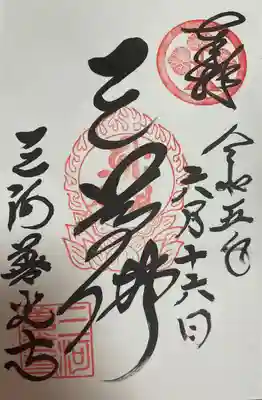 奉拝
令和五年
六月十六日
三尊佛
三河善光寺